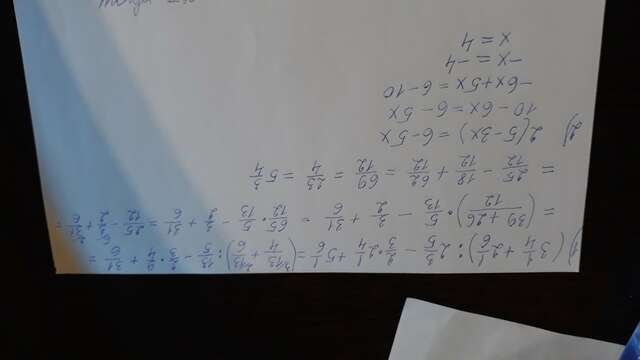 1) (3 1/4 + 2 1/6) : 2 3/5 - 2/3 · 2 1/4 + 5 1/6 = (13/4 + 13/6) : 13/5 - 2/3 · 9/4 + 31/6 =
= (39 + 26 / 12) · 5/13 - 3/2 + 31/6 = 65/12 · 5/13 - 3/2 + 31/6 = 25/12 - 3/2 + 31/6 =
= 25/12 - 18/12 + 62/12 = 69/12 = 23/4 = 5 3/4
2) 2(5 - 3x) = 6 - 5x
10 - 6x = 6 - 5x
-6x + 5x = 6 - 10
-x = -4
x = 4